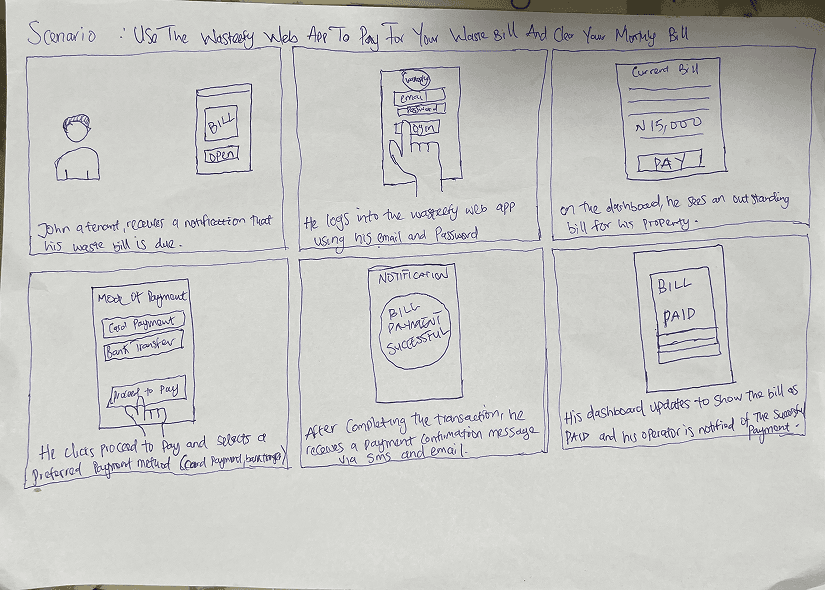 Scenario : Use The Wasteefy Web App To Pay For Your Waste Bill And Clear Your Monthly Bill
BILL
OPEN
John a tenant, receives a notification that
his waste bill is due.
wasteefy
email
Password
Login
He logs into the wasteefy web app
using his email and Password
Current Bill
₦15,000
PAY
on the dashboard, he sees an outstanding
bill for his property.
Mode Of Payment
Card Payment
Bank Transfer
Proceed to Pay
He clicks proceed to pay and selects a
Preferred Payment method (card payment, bank transfer)
NOTIFICATION
BILL
PAYMENT
SUCCESSFUL
After completing the transaction, he
receives a payment confirmation message
via sms and email.
BILL
PAID
His dashboard updates to show the bill as
PAID and his operator is notified of the successful
Payment.